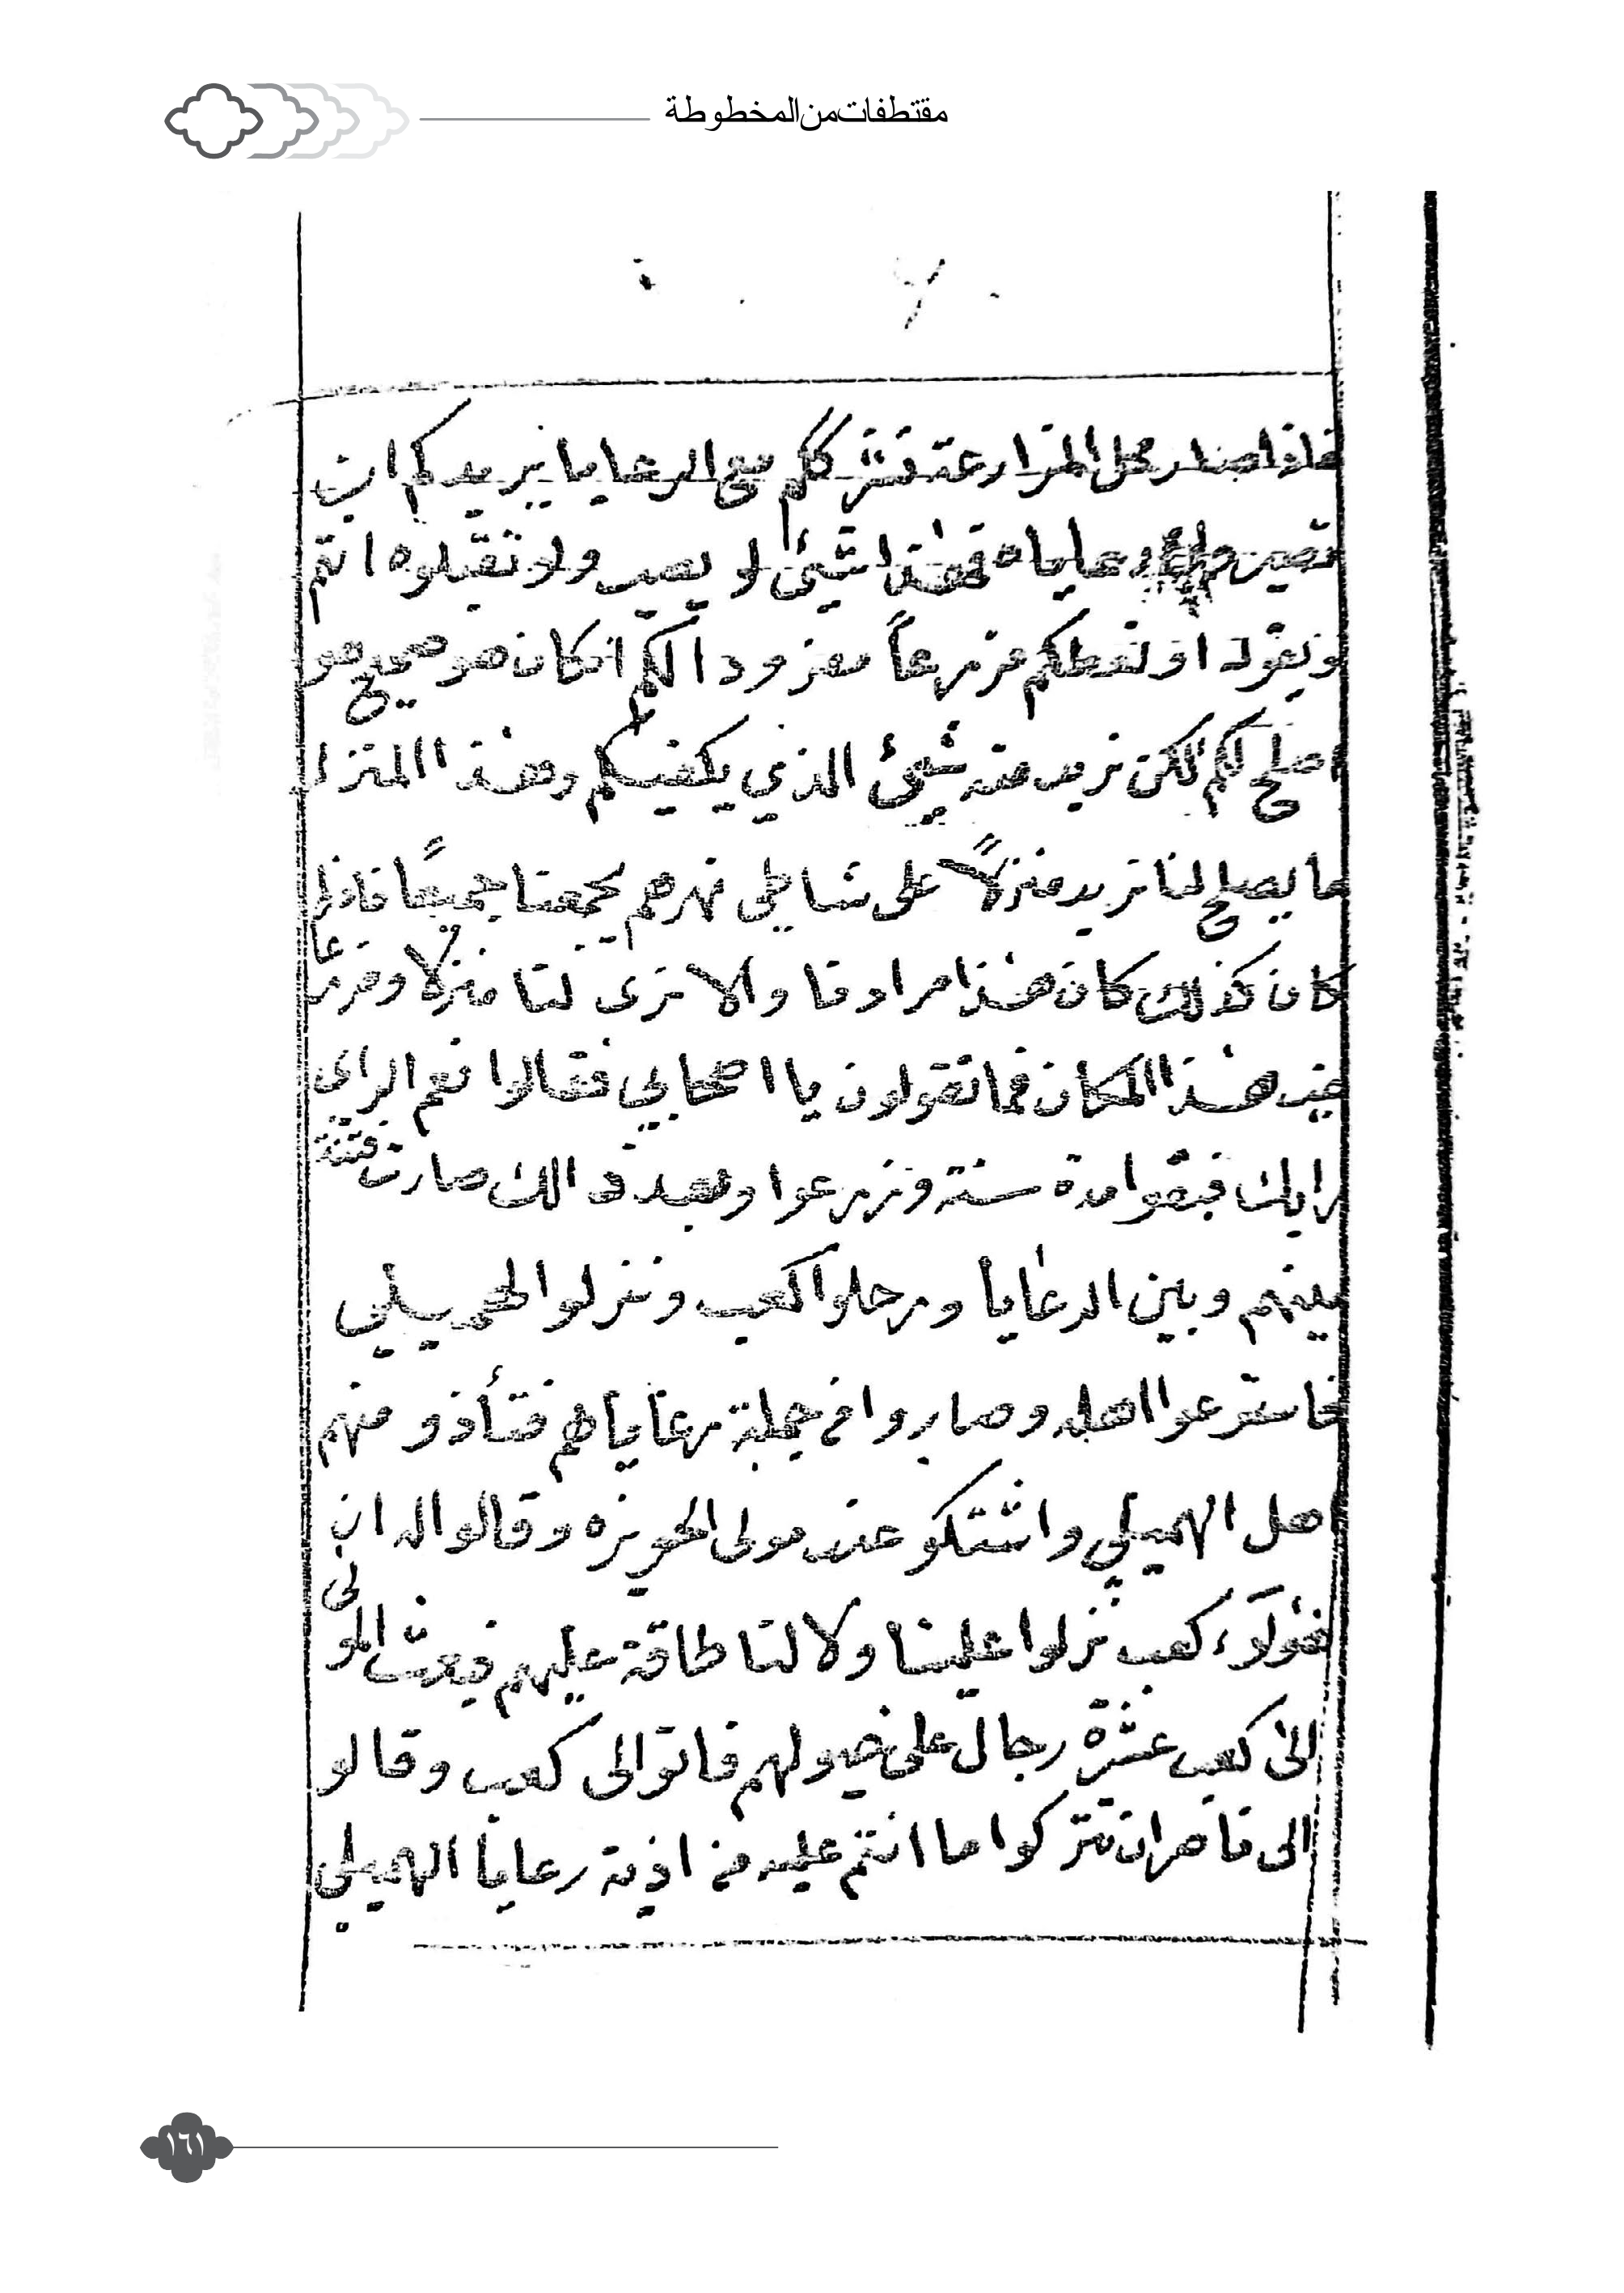 مقتطفات من المخطوطة
فاذا صار محل المزارعة فشرككم مع الرعايا يريدكم ان
تصير رعاياه فهٰذا شيئ لا يصير ولا تقبلوه انتم
ويقوله او نعطيكم مزرعاً مفزود الكم انكان هو صحيح هو
اصلح لكم لكن نريد منه شيئ الذي يكفيكم وهٰذا المنزل
ما يصلح لنا نريد منزلاً على شاطي نهرهم يجمعنا جميعًا فاذا
كان كذلك كان هٰذا مرادنا والا نرى لنا منزلا ومزرعاً
غير هٰذا المكان فما تقولون يا اصحابي فقالوا نعم الراي
رايك فبقوا مدة سنة وزرعوا وبعد ذالك صارت فتنة
بينهم وبين الرعايا ورحلوا كعب ونزلوا الهميلي
فاستر عوا اهله وصاروا في جملة رعاياهم فتأذو منهم
اهل الهميلي واشتكو عند مولى الحويزه وقالوا له ان
هٰولآء كعب نزلوا علينا ولا لنا طاقة عليهم فبعث المولى
الى كعب عشرة رجال على خيولهم فاتوا الى كعب وقالو
الى ناصر ان تتركوا ما انتم عليه من اذية رعايا الهميلي
١٦١